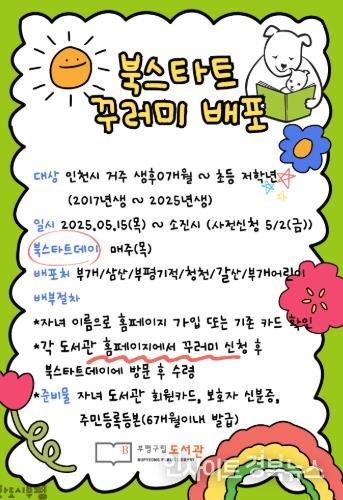 북스타트
꾸러미 배포
대상 인천시 거주 생후0개월 ~ 초등 저학년
(2017년생 ~ 2025년생)
일시 2025.05.15(목) ~ 소진시 (사전신청 5/2(금))
북스타트데이 매주(목)
배포처 부개/삼산/부평기적/청천/갈산/부개어린이
배부절차
*자녀 이름으로 홈페이지 가입 또는 기존 카드 확인
*각 도서관 홈페이지에서 꾸러미 신청 후
북스타트데이에 방문 후 수령
*준비물 자녀 도서관 회원카드, 보호자 신분증,
주민등록등본(6개월이내 발급)
B 부평구립 도서관
BUPYEONG PUBLIC LIBRARY
인사이트 경북뉴스